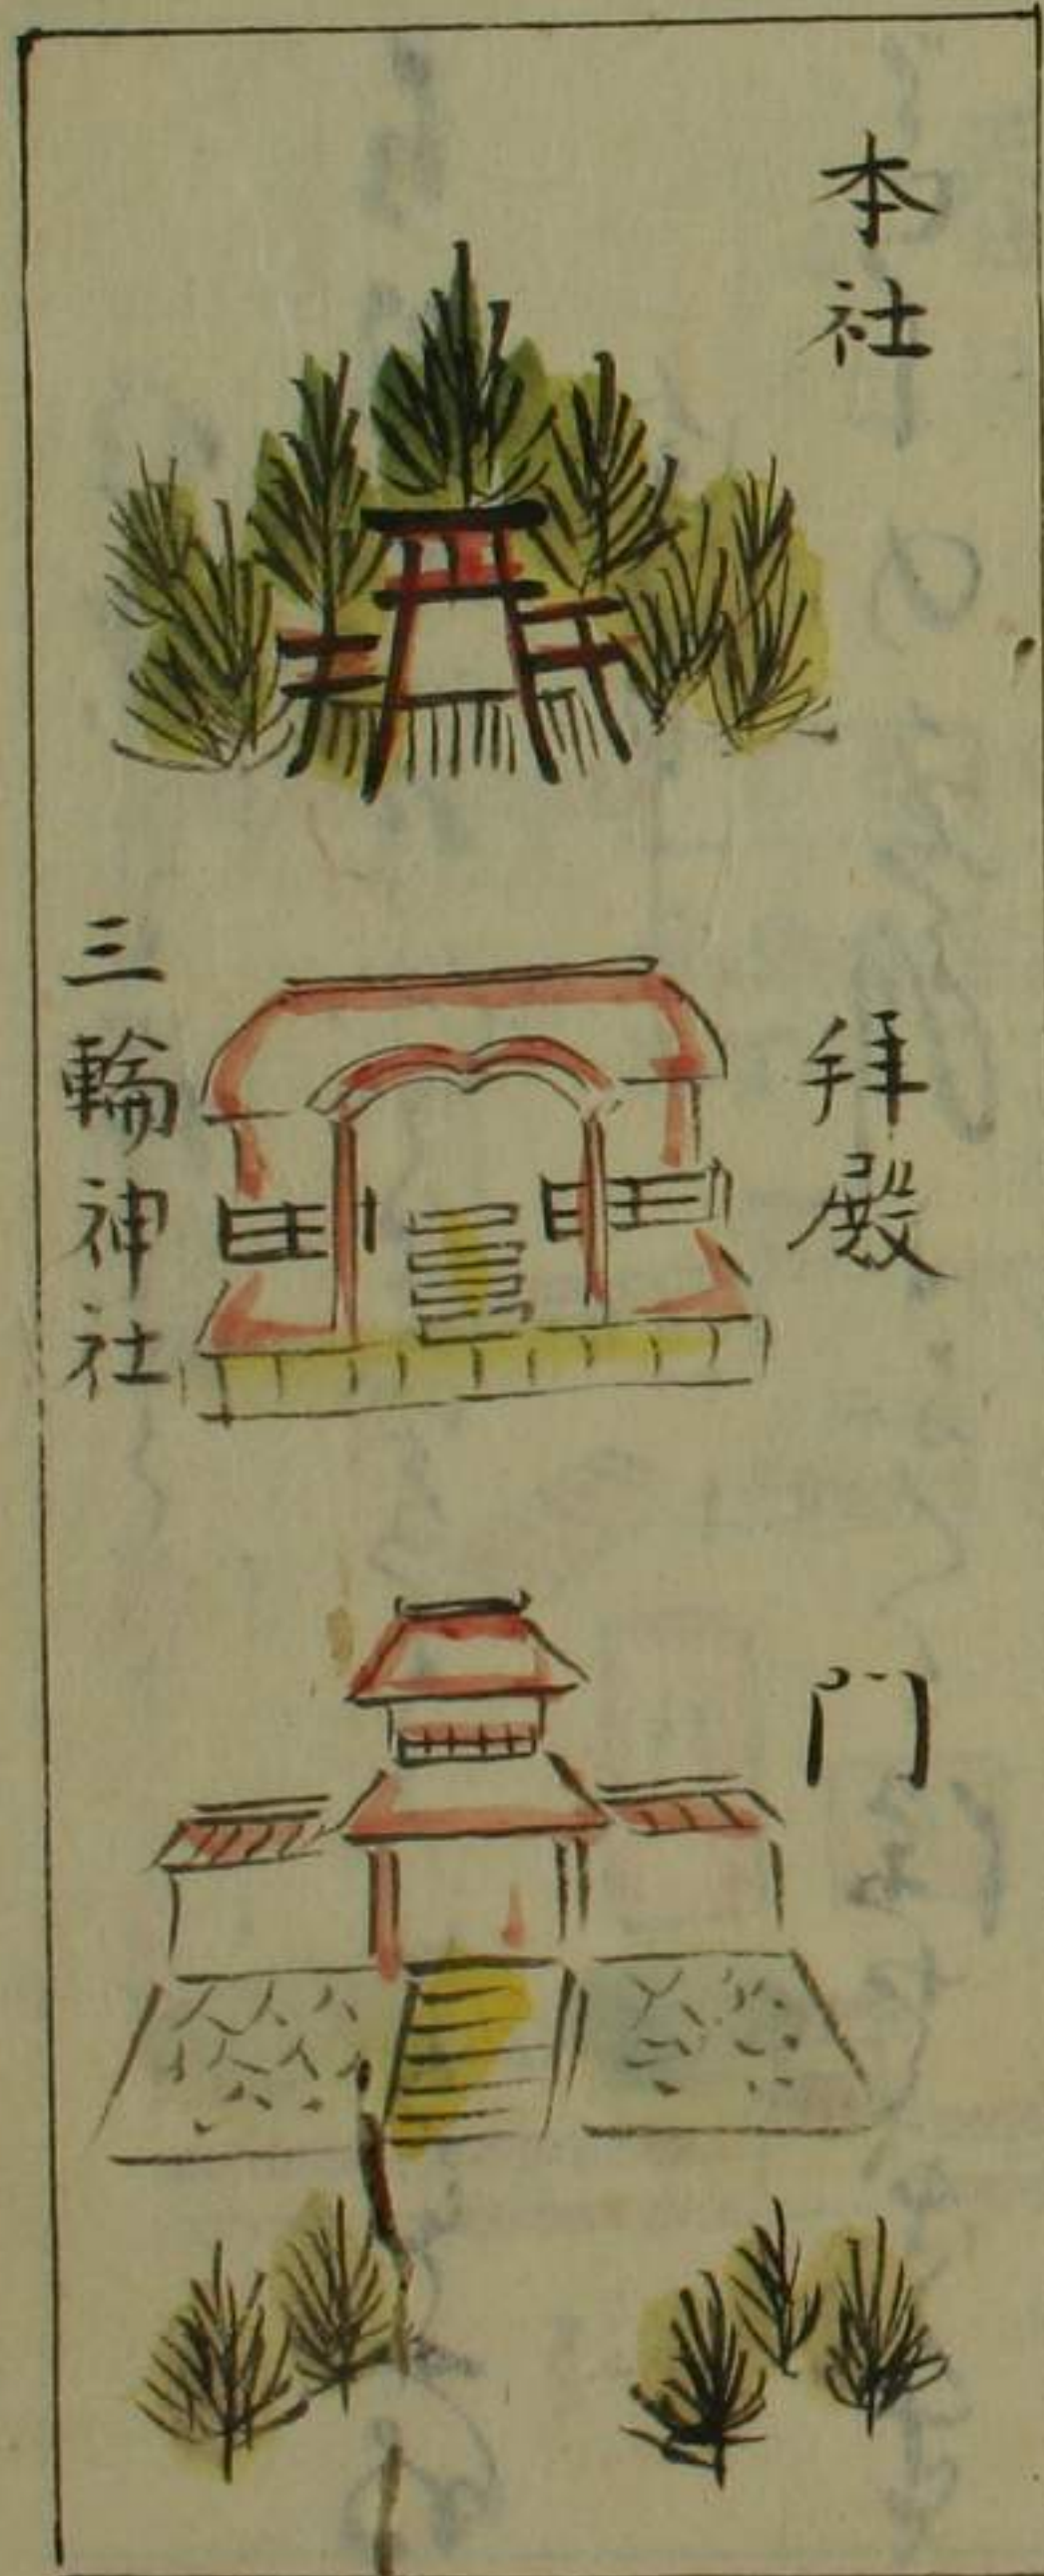 本社
拜殿
門
三輪神社